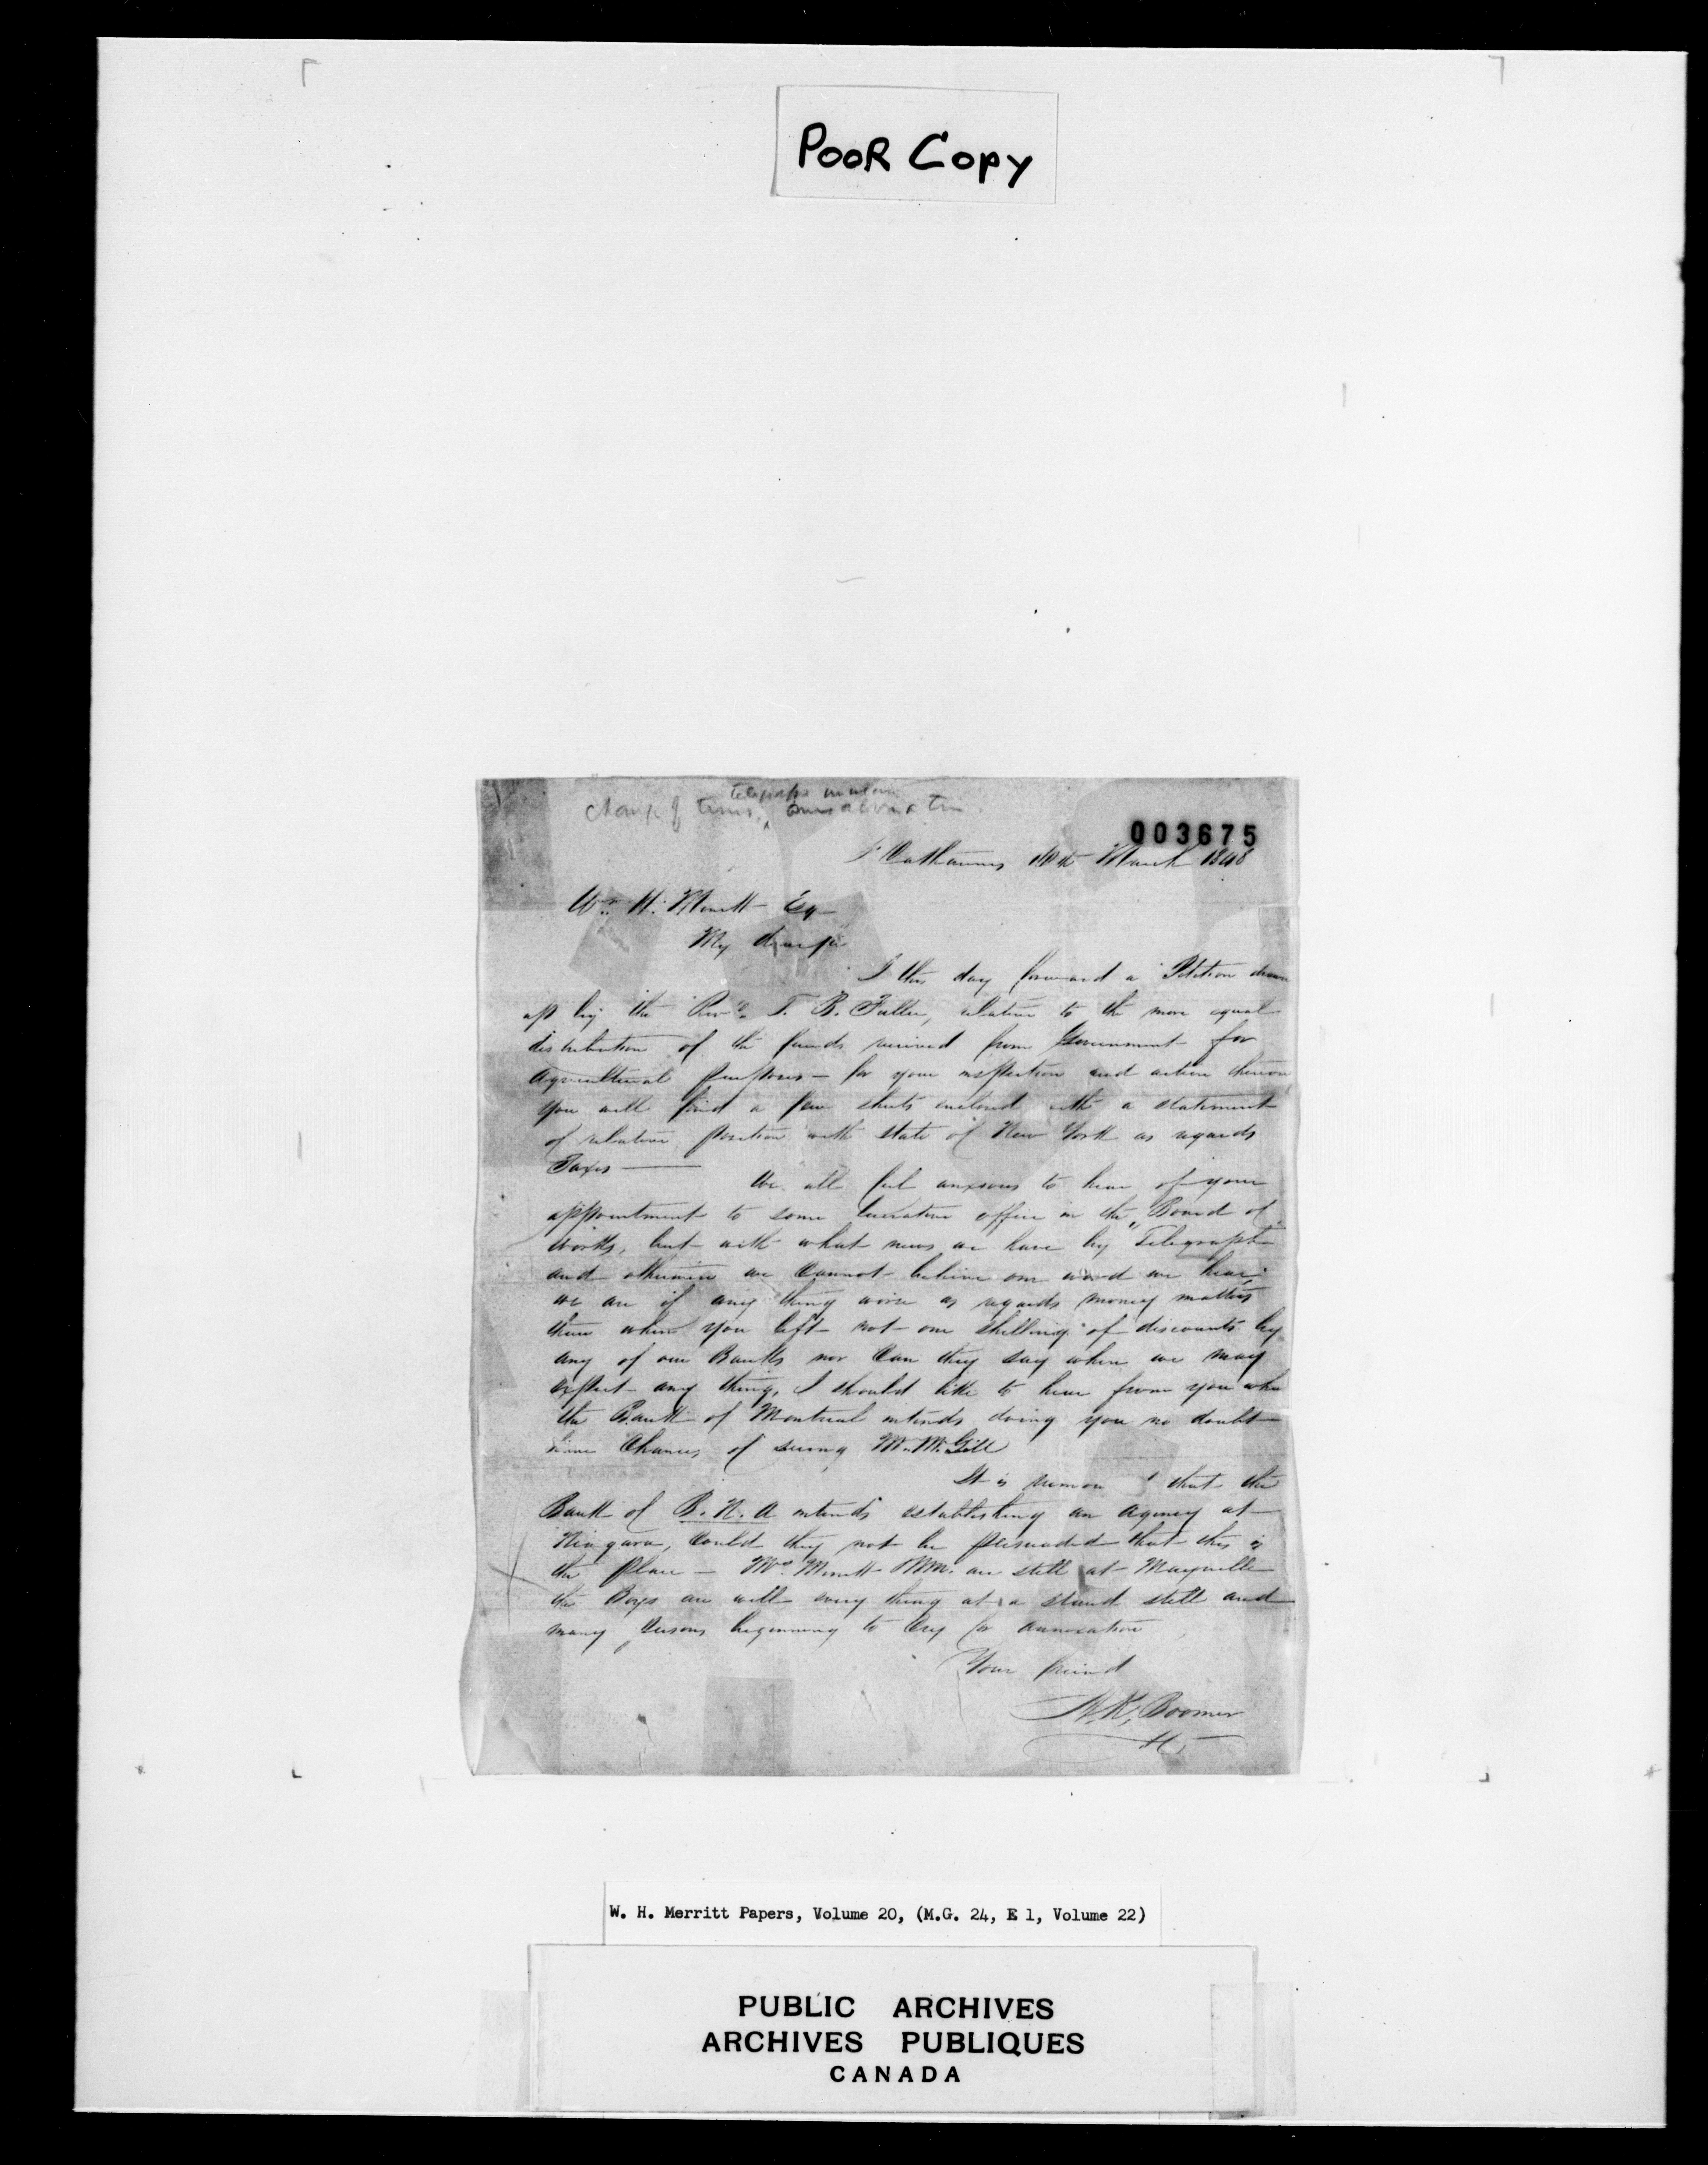 POOR COPY
telegraph
change of times,
003675
St Catharines 10th March 1848
Wm H. Merritt Esq
My dear Sir
I this day forward a Petition drawn
up by the Revd. T. B. Fuller, relative to the more equal
distribution of the funds received from Government for
Agricultural purposes — for your inspection and action thereon
You will find a few sheets enclosed with a statement
of relative position with State of New York as regards
Taxes —
We all feel anxious to hear of your
appointment to some lucrative office in the "Board of
Works," but with what news we have by Telegraph
and otherwise we cannot believe one word we hear;
we are if any thing worse as regards money matters
then when you left not one shilling of discounts by
any of our Banks nor can they say when we may
expect any thing, I should like to hear from you what
the Bank of Montreal intends doing you no doubt
have chances of seeing Mr. McGill
It is rumoured that the
Bank of B. N. A intends establishing an agency at
Niagara, Could they not be persuaded that this is
the place — Mrs. Merritt are still at Mayville
the Boys are well every thing at a stand still and
many persons beginning to Cry for annexation
Your friend
H. K. Boomer
W. H. Merritt Papers, Volume 20, (M.G. 24, E 1, Volume 22)
PUBLIC ARCHIVES
ARCHIVES PUBLIQUES
CANADA